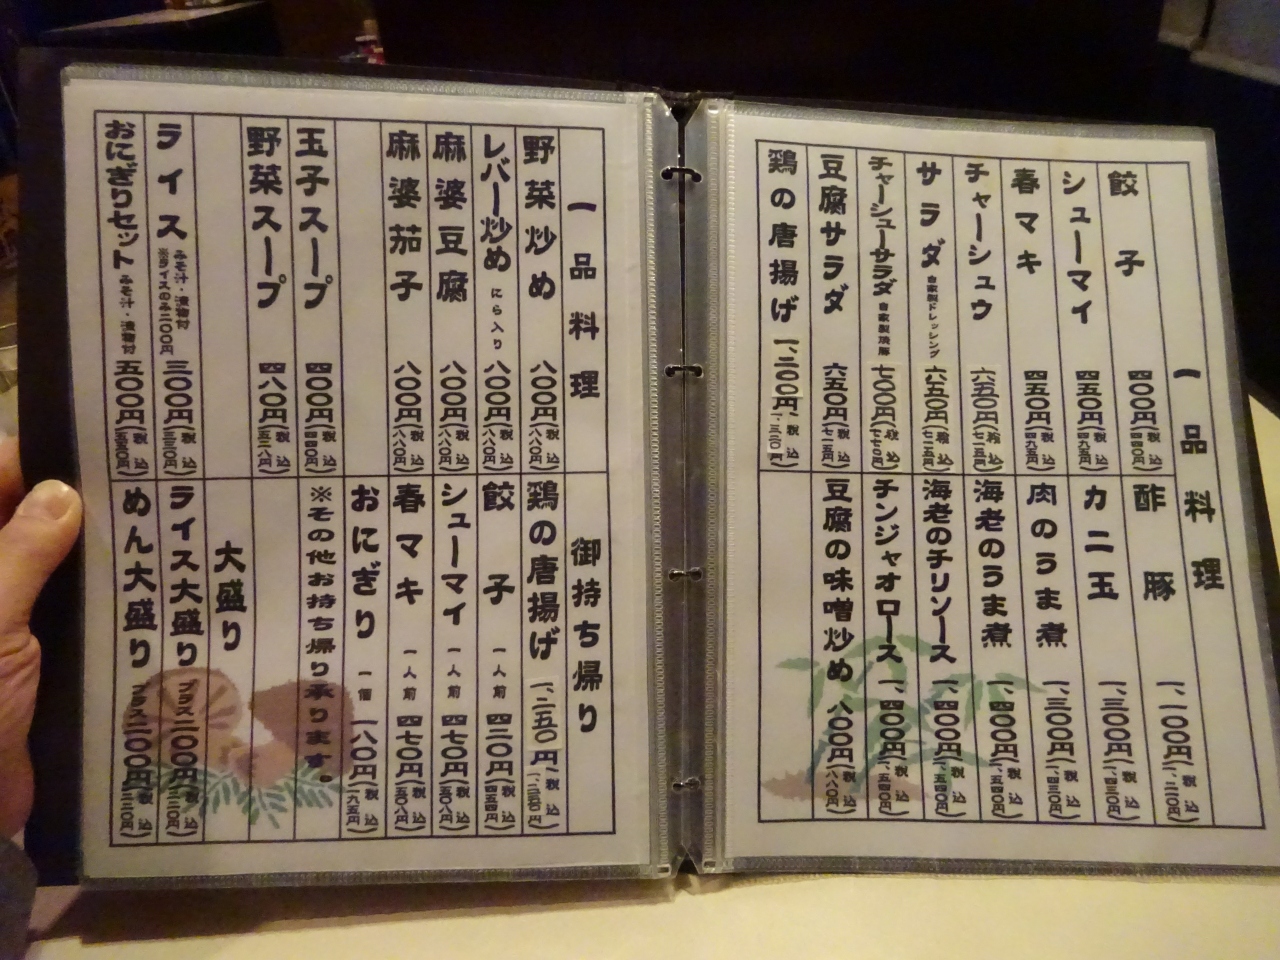 一品料理
餃子 四〇〇円(税込四四〇円)
シューマイ 四五〇円(税込四九五円)
春マキ 四五〇円(税込四九五円)
チャーシュウ 六五〇円(税込七一五円)
サラダ 自家製ドレッシング 六五〇円(税込七一五円)
チャーシューサラダ 自家製焼豚 七〇〇円(税込七七〇円)
豆腐サラダ 六五〇円(税込七一五円)
鶏の唐揚げ 一、二〇〇円(税込一、三二〇円)
酢豚
カニ玉 一、三〇〇円(税込
肉のうま煮 一、三〇〇円(税込
海老のうま煮 一、四〇〇円(税込一、五四〇円)
海老のチリソース 一、四〇〇円(税込一、五四〇円)
チンジャオロース 一、四〇〇円(税込一、五四〇円)
豆腐の味噌炒め 八〇〇円(税込八八〇円)
一品料理
野菜炒め 八〇〇円(税込八八〇円)
レバー炒め にら入り 八〇〇円(税込八八〇円)
麻婆豆腐 八〇〇円(税込八八〇円)
麻婆茄子 八〇〇円(税込八八〇円)
玉子スープ 四〇〇円(税込四四〇円)
野菜スープ 四八〇円(税込五二八円)
ライス みそ汁・漬物付 ※ライスのみ二〇〇円 三〇〇円(税込三三〇円)
おにぎりセット みそ汁・漬物付 五〇〇円(税込五五〇円)
御持ち帰り
鶏の唐揚げ 一、二五〇円(税込
餃子 一人前 四二〇円(税込
シューマイ 一人前 四七〇円(税込
春マキ 一人前 四七〇円(税込
おにぎり 一個 一八〇円(税込
※その他お持ち帰り承ります。
大盛り
ライス大盛り プラス二〇〇円(税込二二〇円)
めん大盛り プラス二〇〇円(税込二二〇円)